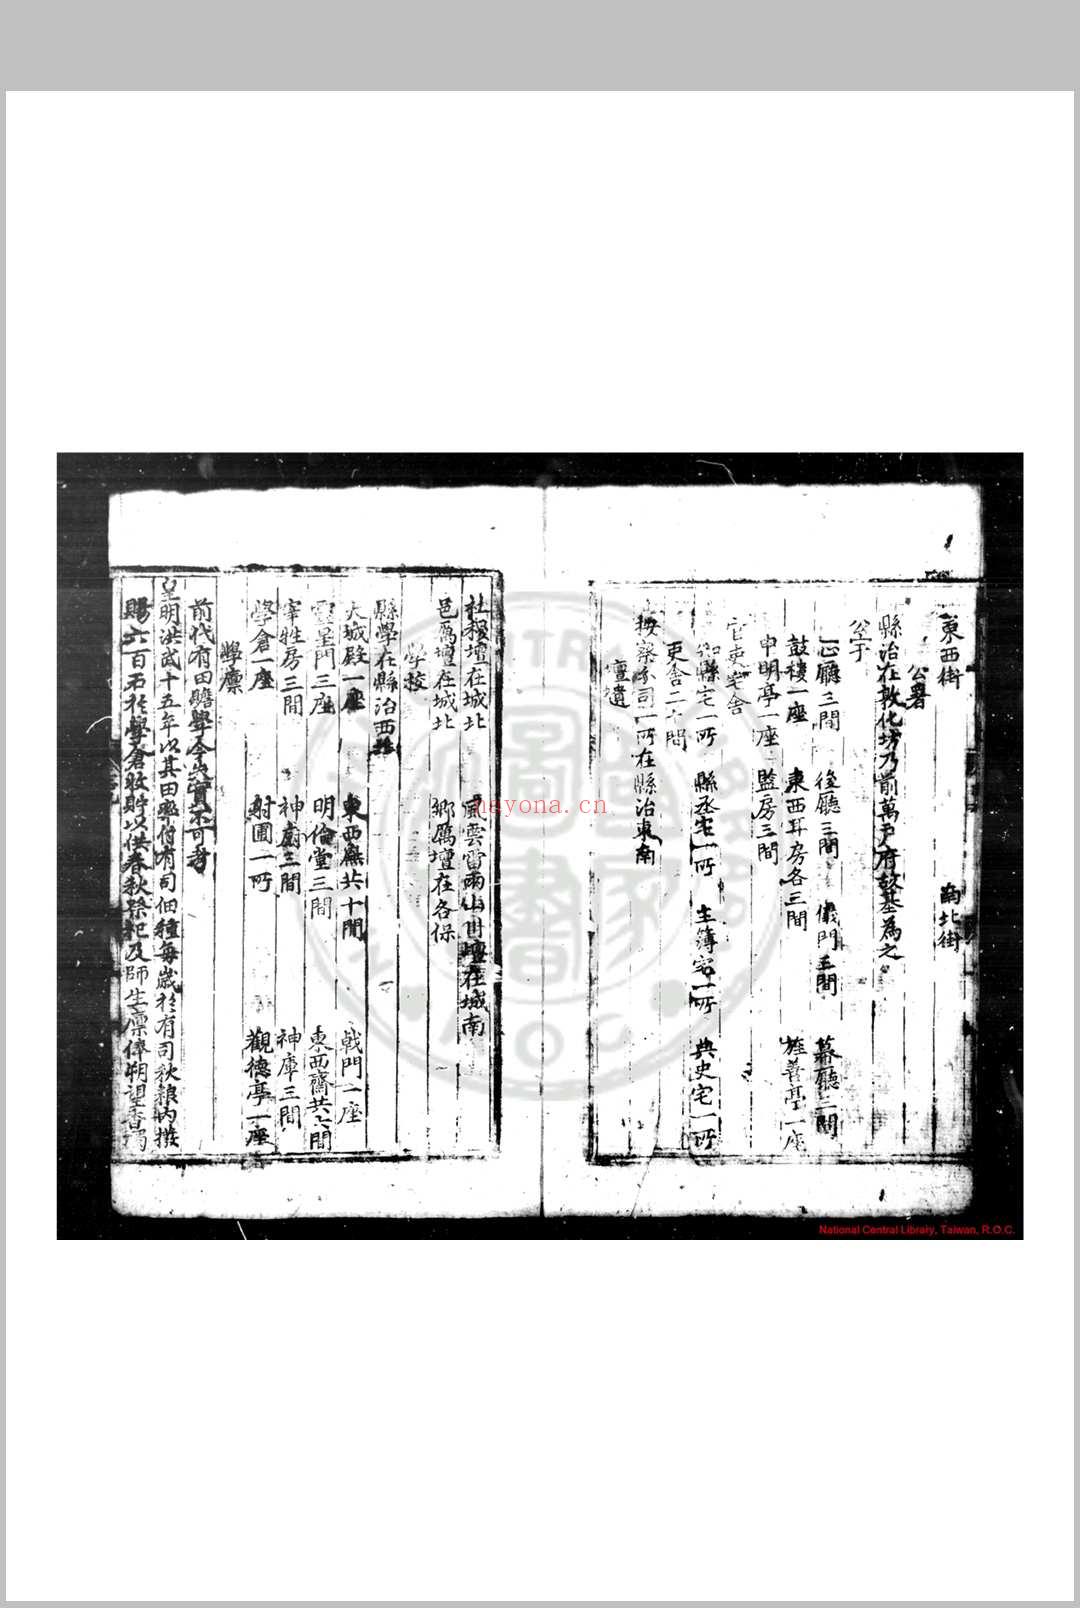 東西街 南北街
公署
縣治在敦化坊乃前萬戶府故基為之
公宇
正廳三間 後廳三間 儀門三間 幕廳二間
鼓樓一座 東西耳房各三間 旌善亭一座
申明亭一座 監房三間
官吏宅舍
知縣宅一所 縣丞宅一所 主簿宅一所 典史宅一所
吏舍二十間
按察分司一所在縣治東南
壇壝
社稷壇在城北 風雲雷雨山川壇在城南
邑厲壇在城北 鄉厲壇在各保
學校
縣學在縣治西
大成殿一座 東西廡共十間 戟門一座
靈星門三座 明倫堂三間 東西齋共六間
宰牲房三間 神廚三間 神庫三間
學倉一座 射圃一所 觀德亭一座
學廩
前代有田贍學今失實不可考
皇明洪武十五年以其田率付有司佃種每歲於有司秋糧內撥
賜六百石於學倉收貯以供春秋祭祀及師生廩俸朔望香燭
nayona.cn
National Central Library, Taiwan, R.O.C.